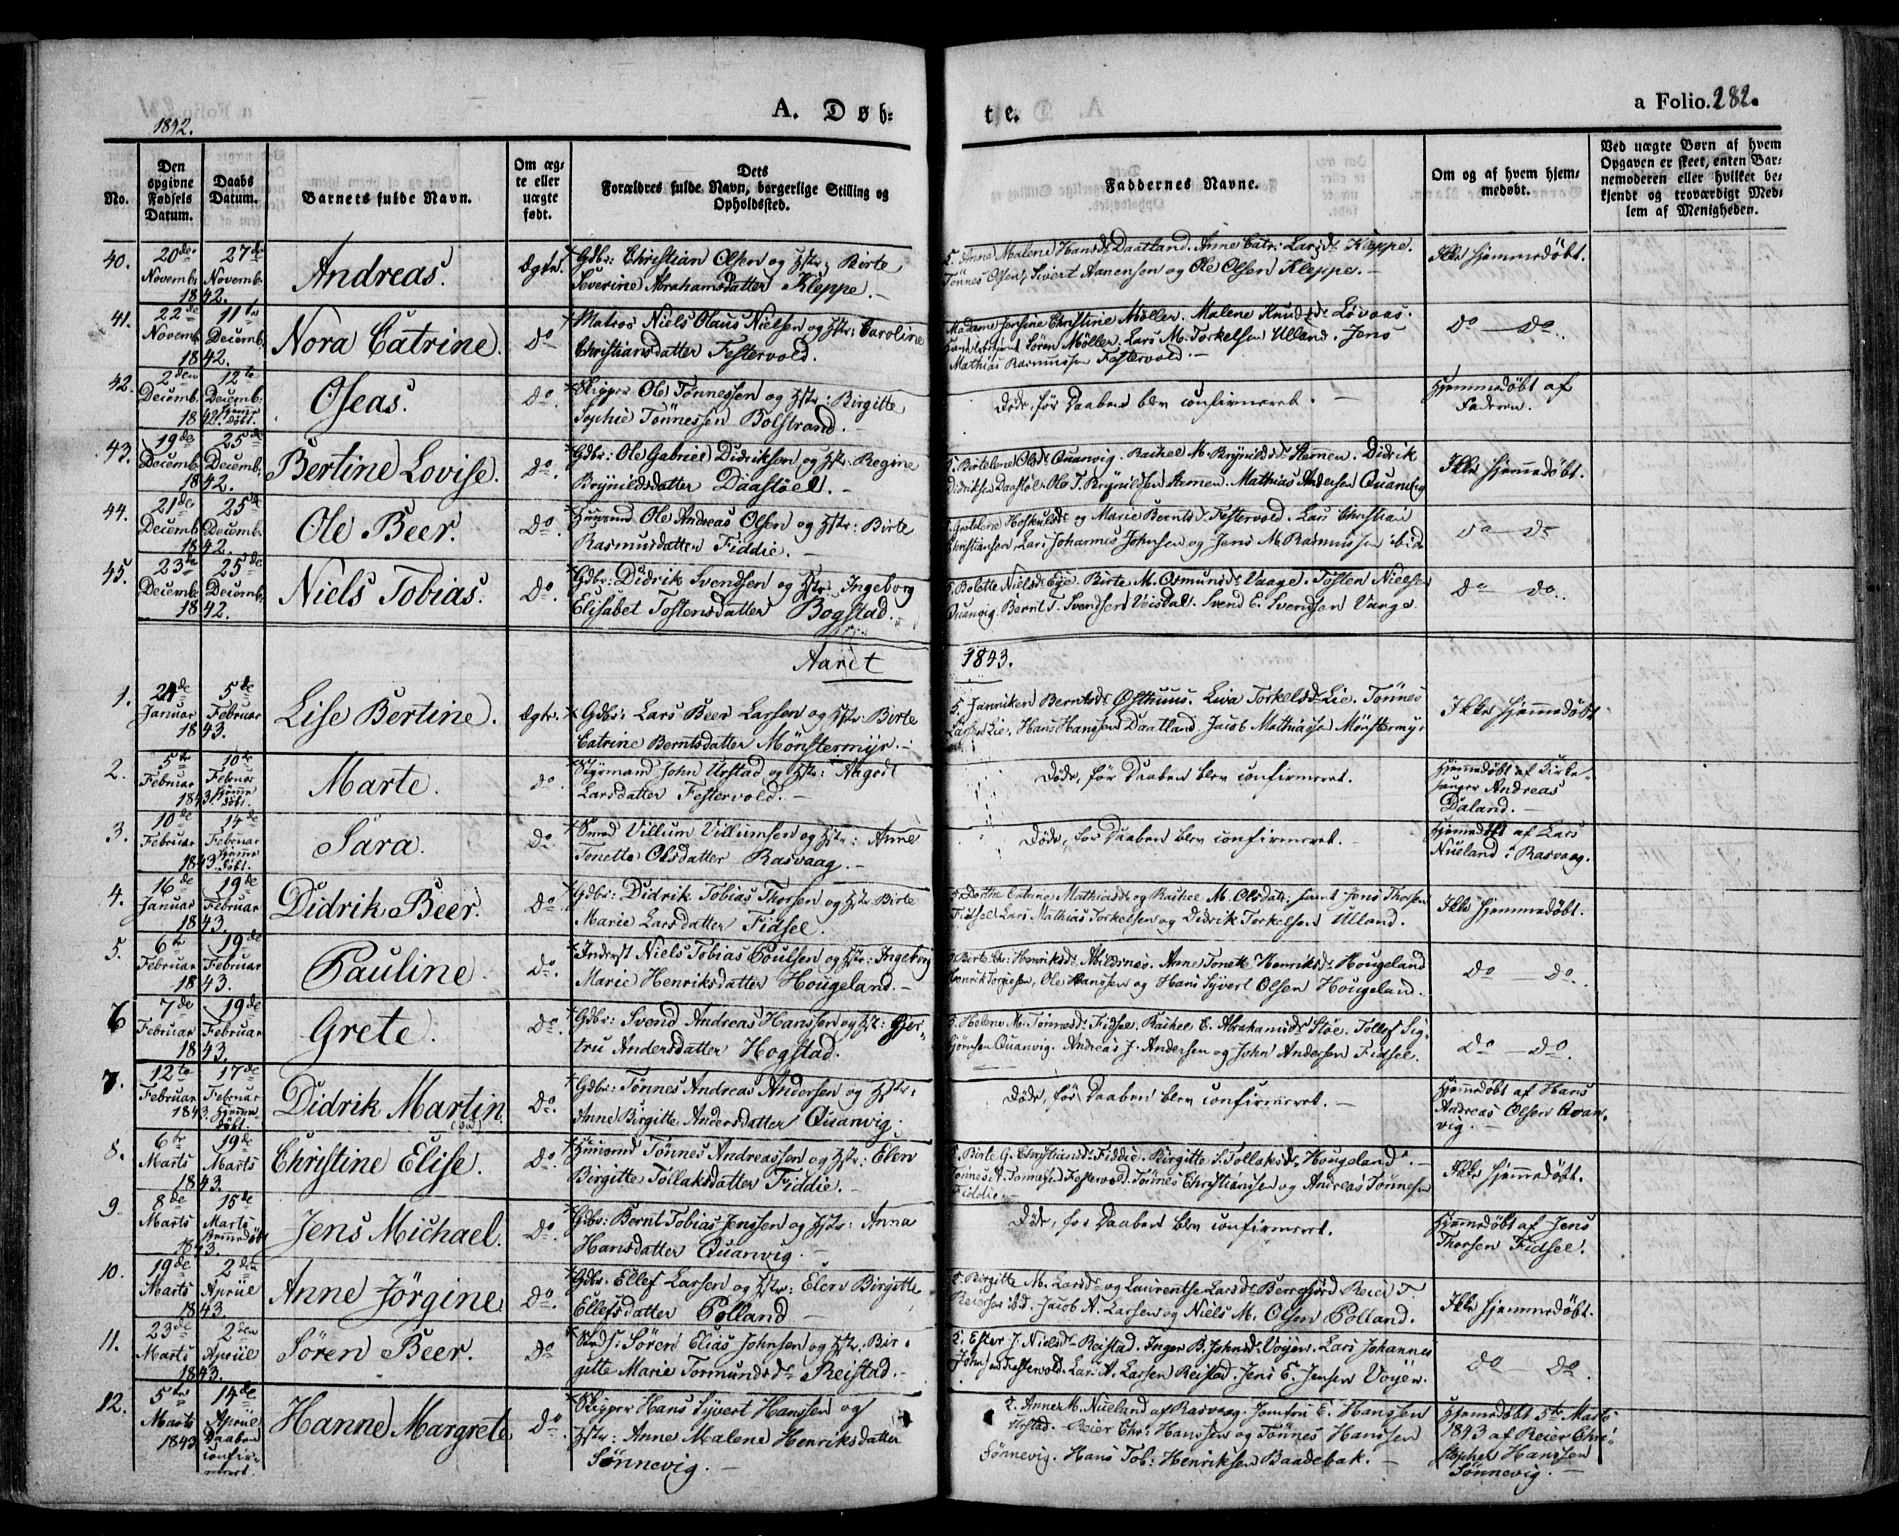 A. Døb-
te.
a Folio. 282.
1842.
No.
Den opgivne Fødsels Datum.
Daabs Datum.
Barnets fulde Navn.
Om ægte eller uægte født.
Dets Forældres fulde Navn, borgerlige Stilling og Opholdssted.
Faddernes Navne.
Om og af hvem hjemmedøbt.
Ved uægte Børn af hvem Opgaven er skeet, enten Barnemoderen eller hvilket bekjendt og troværdigt Medlem af Menigheden.
40. 20de Novemb. 1842. 27de Novemb. Andreas. Ægte.
Gdbr: Christian Olsen og Hstr: Birte
Severine Abrahamsdatter Kleppe. –
Anne Malene Hansd. Daatland. Anne Catr. Larsd. Kleppe.
Tønnes Olsen, Sivert Aanensen og Ole Olsen Kleppe. –
Ikke hjemmedøbt.
41. 22de Novemb. 1842. 11te Decemb. Nora Catrine. Do
Matros Niels Olaus Nielsen og Hstr: Caroline
Christiansdatter Festervold.
Madame Josine Christine Møller. Malene Knudsd. Løvaas.
Søren Møller. Lars M. Torkelsen Ulland. Jens
Mathias Rasmussen Festervold. –
Do – Do.
42. 2den Decemb. 1842. 12te Decemb. hjemmedøbt. Oseas. Do.
Skipper Ole Tønnessen og Hstr: Birgitte
Sophie Tønnessen Bolstrand. –
Døde, før Daaben blev confirmeret. –
Hjemmedøbt af
Faderen.
43. 19de Decemb. 1842. 25de Decemb. Bertine Lovise. Do.
Gdbr: Ole Gabriel Didriksen og Hstr: Regine
Brynildsdatter Daastøel. –
Birtelene Olsd. Quanvig. Rachel M. Brynildsd. Stemen. Didrik
Didriksen Daastøl. Ole T. Brynildsen Stemen. Mathias Andersen Quanvig
Ikke hjemmedøbt.
44. 21de Decemb. 1842. 25de Decemb. Ole Beer. Do.
Ole Andreas Olsen og Hstr: Birte
Rasmusdatter Fiddie. –
Hoskulsd. og Marie Berntsd. Festervold. Lars Christian
Christiansen, Lars Johannes Johnsen og Jens M. Rasmussen ibid.
Do – Do
45. 23de Decemb. 1842. 25de Decemb. Niels Tobias. Do.
Gdbr: Didrik Svendsen og Hstr: Ingeborg
Elisabet Tostensdatter Bogstad.
Bolette Nielsd. Eje. Birte M. Osmundsd. Vaage. Tosten Nielsen
Quanvig. Bernt T. Svendsen Veisdal. Svend E. Svendsen Vaage.
Do – Do.
Aaret 1843.
1. 24de Januar 1843. 5te Februar Lise Bertine. Ægte.
Gdbr: Lars Beer Larsen og Hstr: Birte
Catrine Berntsdatter Mønstermyr. –
Janniken Berntsd. Østhuus. Liva Torkelsd. Lie. Tønnes
Larsen Lie. Hans Hanssen Daatland. Jacob Mathiassen Mønstermyr
Ikke hjemmedøbt
2. 5te Februar 1843. 10de Februar hjemmedøbt. Marte. Do.
Styrmand John Urstad og Hstr: Aagot
Larsdatter Festervold. –
Døde, før Daaben blev confirmeret.
Hjemmedøbt af Kirke-
sanger Andreas
Daland. –
3. 10de Februar 1843. 14de Februar hjemmedøbt. Sara. Do.
Smed Villum Villumsen og Hstr: Anne
Tonette Olsdatter Rasvaag. –
Døde, før Daaben blev confirmeret. –
Hjemmedøbt af Lars
Nueland i Rasvaag.
4. 16de Januar 1843. 19de Februar Didrik Beer. Do.
Gdbr: Didrik Tobias Thorsen og Hstr: Birte
Marie Larsdatter Fidsel.
Dorthe Catrine Mathiasd. og Rachel M. Olsdatr. samt Jens Thorsen
Fidsel. Lars Mathias Torkelsen og Didrik Torkelsen Ulland.
Ikke hjemmedøbt.
5. 6te Februar 1843. 19de Februar Pauline. Do.
Inderst Niels Tobias Poulsen og Hstr: Ingeborg
Marie Henriksdatter Hougeland. –
Birte Chr. Henriksd. Abildsnæs. Anne Tonette Henriksd. Hougeland
Henrik Torgiesen, Ole Hanssen og Hans Syvert Olsen Hougeland.
Do Do.
6 7de Februar 1843. 19de Februar Grete. Do.
Gdbr: Svend Andreas Hanssen og Hstr: Gjer-
tru Andersdatter Hogstad.
Helene M. Tønnesd. Fidsel. Rachel E. Abrahamsd. Støe. Tollef Sig-
bjørnsen Quanvig. Andreas J. Andersen og John Andersen Fidsel.
Do – Do.
7. 12te Februar 1843. 17de Februar hjemmedøbt. Didrik Martin. Do.
Gdbr: Tønnes Andreas Andersen og Hstr:
Anne Birgitte Andersdatter Quanvig.
Døde, før Daaben blev confirmeret. –
Hjemmedøbt af Hans
Andreas Olsen Quan-
vig. –
8. 6te Marts 1843. 19de Marts Christine Elise. Do.
Tønnes Andreassen og Hstr: Elen
Birgitte Tollaksdatter Fiddie. –
Birte G. Christiansd. Fiddie. Birgitte S. Tollaksd. Hougeland. –
Tønnes A. Tønnesen Festervold. Tønnes Christianssen og Andreas Tønnesen
Fiddie. –
Ikke hjemmedøbt.
9. 8de Marts 1843. 15de Marts hjemmedøbt Jens Michael. Do.
Gdbr: Bernt Tobias Jenssen og Hstr: Anna
Hansdatter Quanvig. –
Døde, før Daaben blev confirmeret.
Hjemmedøbt af Jens
Thorsen Fidsel.
10. 19de Marts 1843. 2den Apriil Anne Jørgine Do.
Gdbr: Ellef Larsen og Hstr: Elen Birgitte
Ellefsdatter Polland –
Birgitte M. Larsd. og Laurentse Larsd. Berrefjord Reier T.
Reiersen ibd. Jacob A. Larsen og Niels M. Olsen Polland.
Ikke hjemmedøbt.
11. 23de Marts 1843. 2den Apriil Søren Beer. Do
Søren Elias Johnsen og Hstr: Bir-
gitte Marie Tormundsdr Reistad. –
Ester J. Nielsd. Reistad. Inger B. Johnsd. Vøjen. Lars Johannes
Johnsen Festervold. Lars A. Larsen Reistad. Jens E. Jensen Vøjen.
Do Do.
12. 5te Marts 1843 14de Apriil Daaben confirmeret. Hanne Margrete Do
Skipper Hans Syvert Hanssen og
Hstr: Anne Malene Henriksdatter
Sønnevig. –
Anne M. Nueland af Rasvaag. Jomfru E. Hanssen
Hogstad. Reier Chr: Hanssen og Tønnes Hanssen
Sønnevig. Hans Tob: Henriksen Baadebak. –
Hjemmedøbt 5te Marts
1843 af Reier Chri-
stopher Hanssen
Sønnevig. –